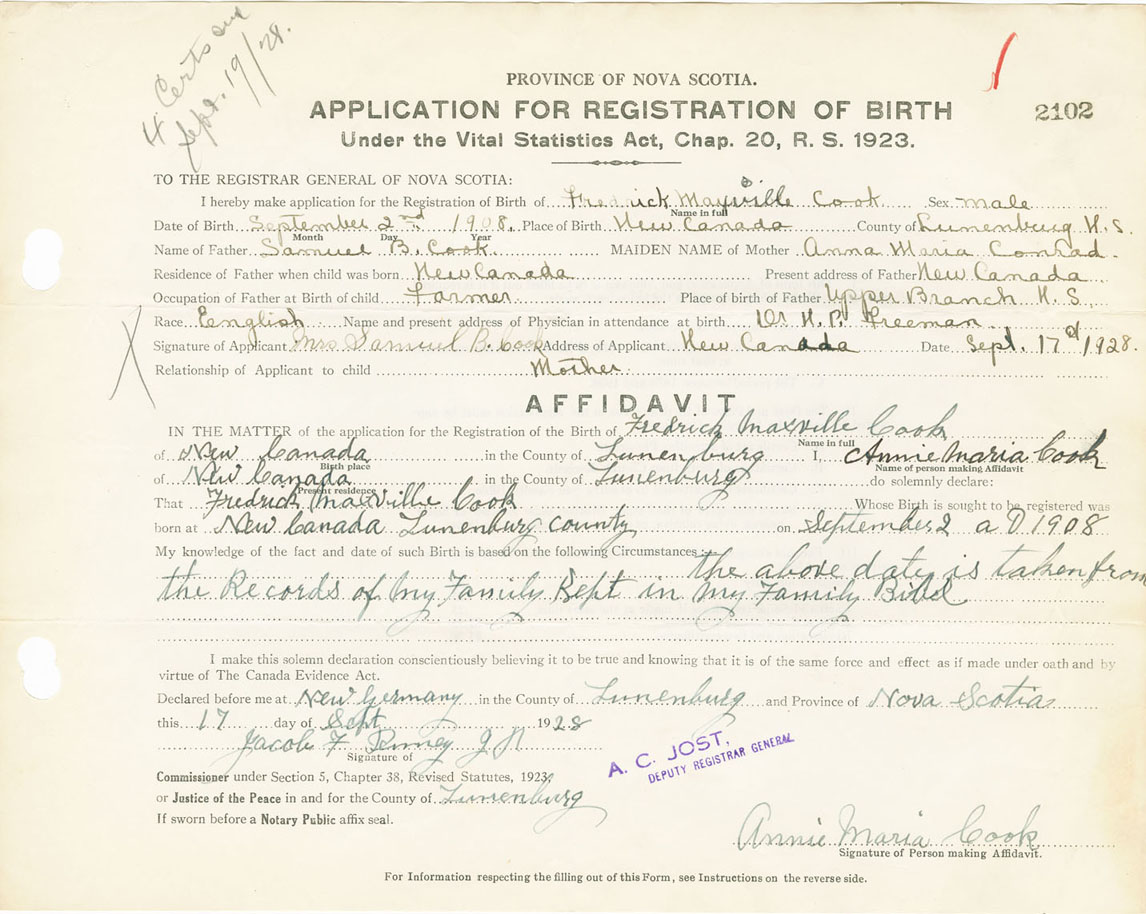 4 Certs
Sept. 19/28.
PROVINCE OF NOVA SCOTIA.
APPLICATION FOR REGISTRATION OF BIRTH
2102
Under the Vital Statistics Act, Chap. 20, R. S. 1923.
TO THE REGISTRAR GENERAL OF NOVA SCOTIA:
I hereby make application for the Registration of Birth of Fredrick Maxville Cook Sex male
Name in full
Date of Birth September 2nd 1908. Place of Birth New Canada County of Lunenburg N. S.
Month Day Year
Name of Father Samuel B. Cook MAIDEN NAME of Mother Anna Maria Conrad.
Residence of Father when child was born New Canada Present address of Father New Canada
Occupation of Father at Birth of child Farmer Place of birth of Father Upper Branch N. S.
Race English Name and present address of Physician in attendance at birth Dr H. P. Freeman
Signature of Applicant Mrs Samuel B. Cook Address of Applicant New Canada Date Sept. 17 1928.
Relationship of Applicant to child Mother
AFFIDAVIT
IN THE MATTER of the application for the Registration of the Birth of Fredrick Maxville Cook
Name in full
of New Canada in the County of Lunenburg I, Annie Maria Cook
Birth place Name of person making Affidavit
of New Canada in the County of Lunenburg do solemnly declare:
Present residence
That Fredrick Maxville Cook Whose Birth is sought to be registered was
born at New Canada Lunenburg county on September 2 a D 1908
My knowledge of the fact and date of such Birth is based on the following Circumstances:
the above date is taken from
the Records of my Family Kept in my Family Bibel
I make this solemn declaration conscientiously believing it to be true and knowing that it is of the same force and effect as if made under oath and by
virtue of The Canada Evidence Act.
Declared before me at New Germany in the County of Lunenburg and Province of Nova Scotia
this 17 day of Sept 1928
Jacob F
Signature of
A. C. JOST,
DEPUTY REGISTRAR GENERAL
Commissioner under Section 5, Chapter 38, Revised Statutes, 1923,
or Justice of the Peace in and for the County of Lunenburg
If sworn before a Notary Public affix seal.
Annie Maria Cook
Signature of Person making Affidavit.
For Information respecting the filling out of this Form, see Instructions on the reverse side.